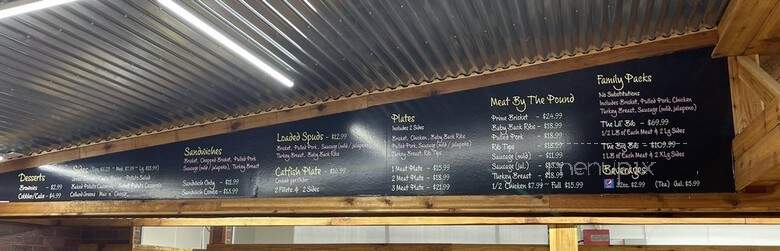 Desserts
Brownies - $2.99
Cobbler/Cake - $4.99
Sides
Baked Potato Casserole
Collard Greens Mac n Cheese
Potato Salad
Sandwiches
Brisket, Chopped Brisket, Pulled Pork
Sausage (mild / jalapeno), Turkey Breast
Sandwich Only - $11.99
Sandwich Combo - $13.99
Loaded Spuds - $12.99
Brisket, Pulled Pork
Sausage (mild / jalapeno)
Turkey Breast, Baby Back Ribs
Catfish Plate -
2 Fillets & 2 Sides
Plates
Includes 2 Sides
Brisket, Chicken, Baby Back Ribs
Pulled Pork, Sausage (mild / jalapeno)
Turkey Breast, Rib Tips
1 Meat Plate - $15.99
2 Meat Plate - $18.99
3 Meat Plate - $21.99
Meat By The Pound
Prime Brisket - $24.99
Baby Back Ribs - $18.99
Pulled Pork - $18.99
Rib Tips
Sausage (mild) - $11.99
Sausage (jal.)
Turkey Breast - $18.99
1/2 Chicken $7.99 - Full $15.99
Family Packs
No Substitutions
Includes Brisket, Pulled Pork, Chicken
Turkey Breast, Sausage (mild, jalapeno)
The Lil' Bib - $69.99
1/2 LB of Each Meat & 2 Lg Sides
The Big Bib - $109.99
1 LB of Each Meat & 2 XLg Sides
Beverages
32oz. $2.99 (Tea) Gal. $5.99
menupix